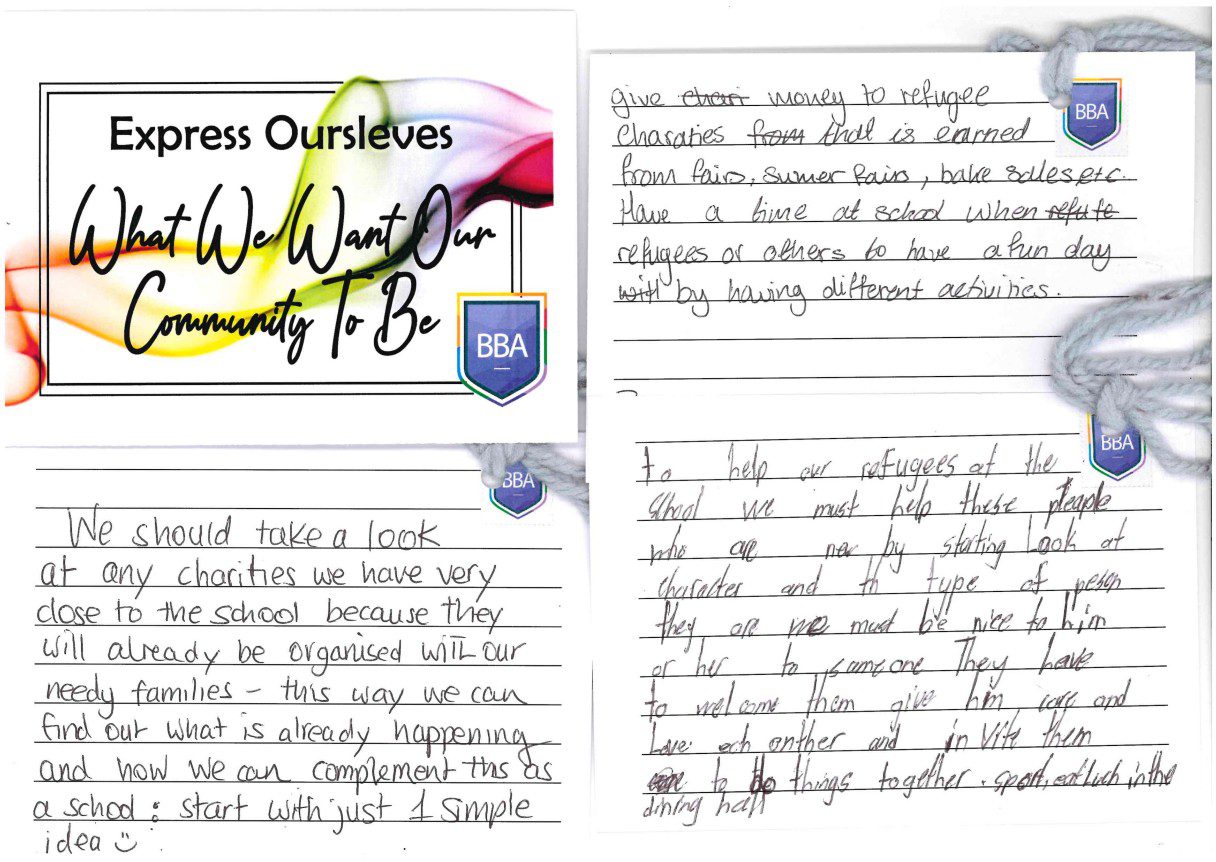 Express Oursleves
What We Want Our
Community To Be
BBA
We should take a look
at any charities we have very
close to the school because they
will already be organised with our
needy families – this way we can
find out what is already happening
and how we can complement this as
a school : start with just 1 simple
idea
BBA
give chari money to refugee
charaties from that is earned
from fairs, sumer fairs, bake sales etc.
Have a time at school when refute
refugees or others to have a fun day
with by having different activities.
BBA
to help our refugees at the
school we must help these pleaple
who are new by starting Look at
character and th type of peson
they are we must be nice to him
or her to someone They have
to welcome them give him, care and
Love och onther and invite them
to do things together. sport, eat luch in the
dining hall
BBA